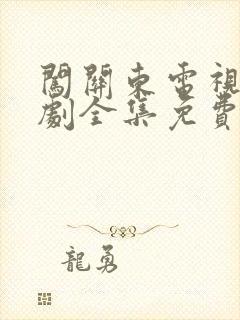 闖關東電視
劇全集免費
龍勇